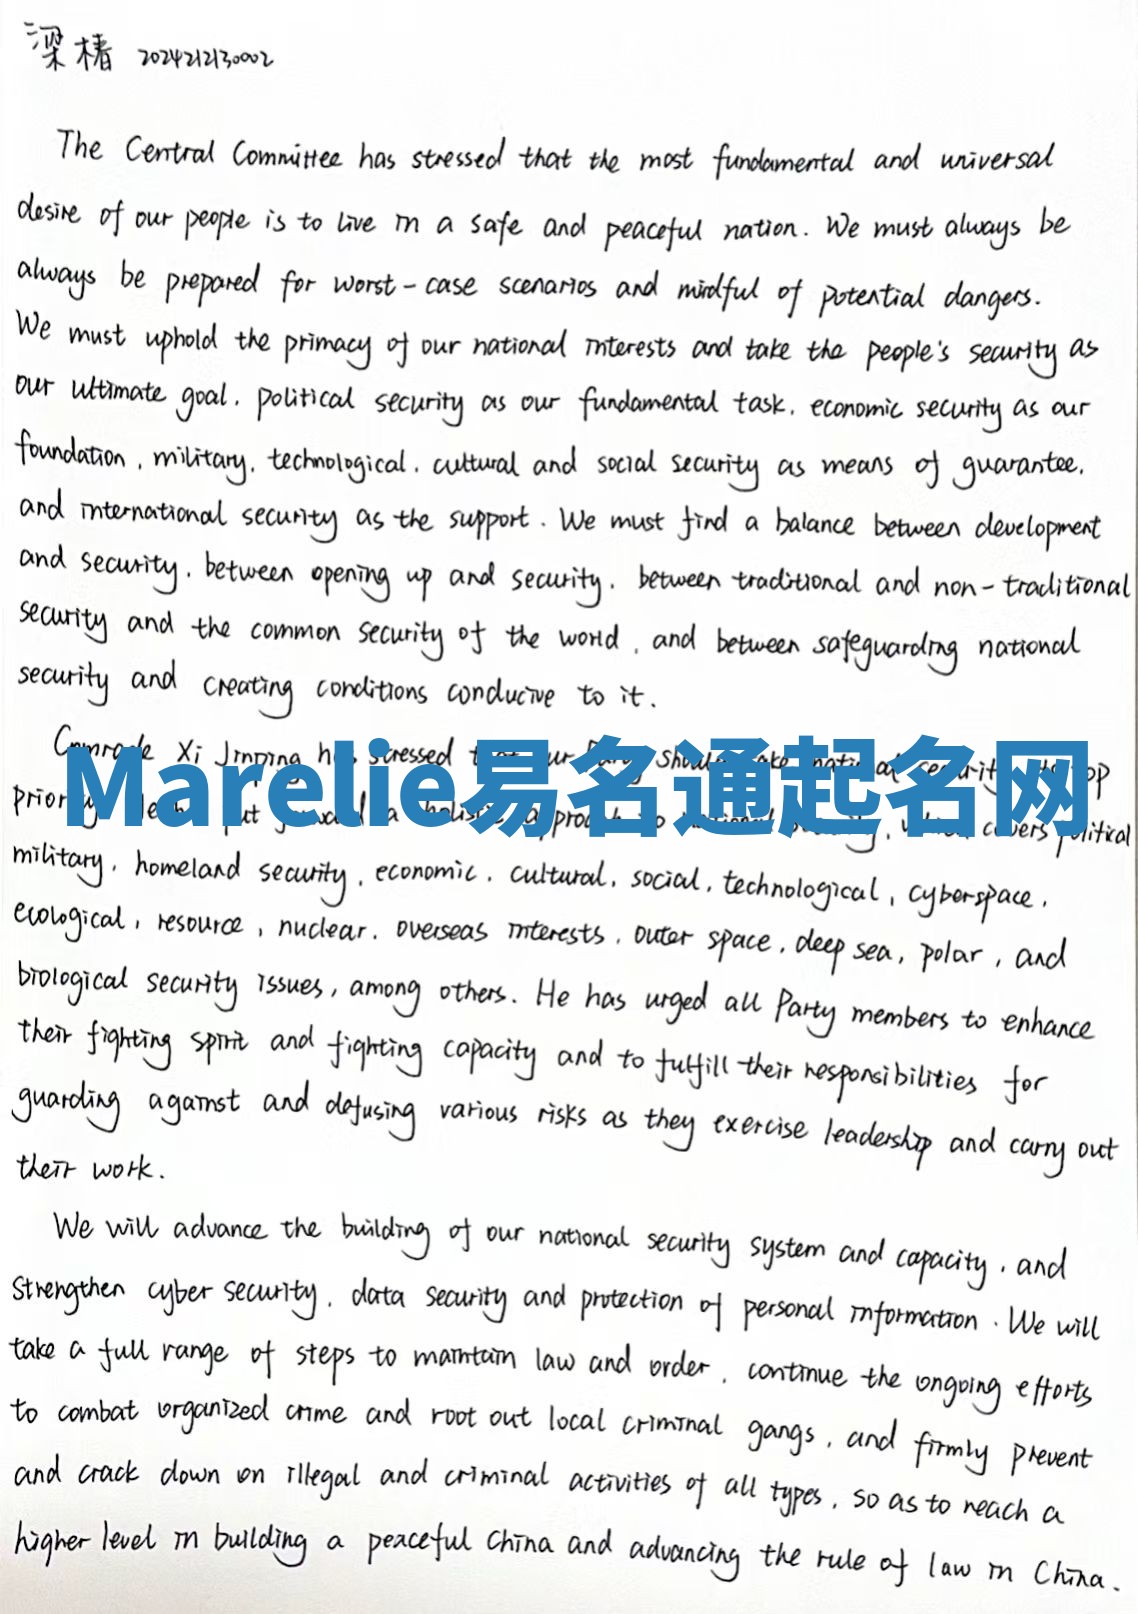 梁椿 2024212130002
The Central Committee has stressed that the most fundamental and universal
desire of our people is to live in a safe and peaceful nation. We must always be
always be prepared for worst-case scenarios and mindful of potential dangers.
We must uphold the primacy of our national interests and take the people's security as
our ultimate goal, political security as our fundamental task, economic security as our
foundation, military, technological, cultural and social security as means of guarantee,
and international security as the support. We must find a balance between development
and security, between opening up and security, between traditional and non-traditional
security and the common security of the world, and between safeguarding national
security and creating conditions conducive to it.
Comrade Xi Jinping has stressed that our Party should national security top
Marelie易名通起名网
priority put forward a holistic approach to national security, which covers political
military, homeland security, economic, cultural, social, technological, cyberspace,
ecological, resource, nuclear, overseas interests, outer space, deep sea, polar, and
biological security issues, among others. He has urged all Party members to enhance
their fighting spirit and fighting capacity and to fulfill their responsibilities for
guarding against and defusing various risks as they exercise leadership and carry out
their work.
We will advance the building of our national security system and capacity, and
strengthen cyber security, data security and protection of personal information. We will
take a full range of steps to maintain law and order, continue the ongoing efforts
to combat organized crime and root out local criminal gangs, and firmly prevent
and crack down on illegal and criminal activities of all types, so as to reach a
higher level in building a peaceful China and advancing the rule of law in China.